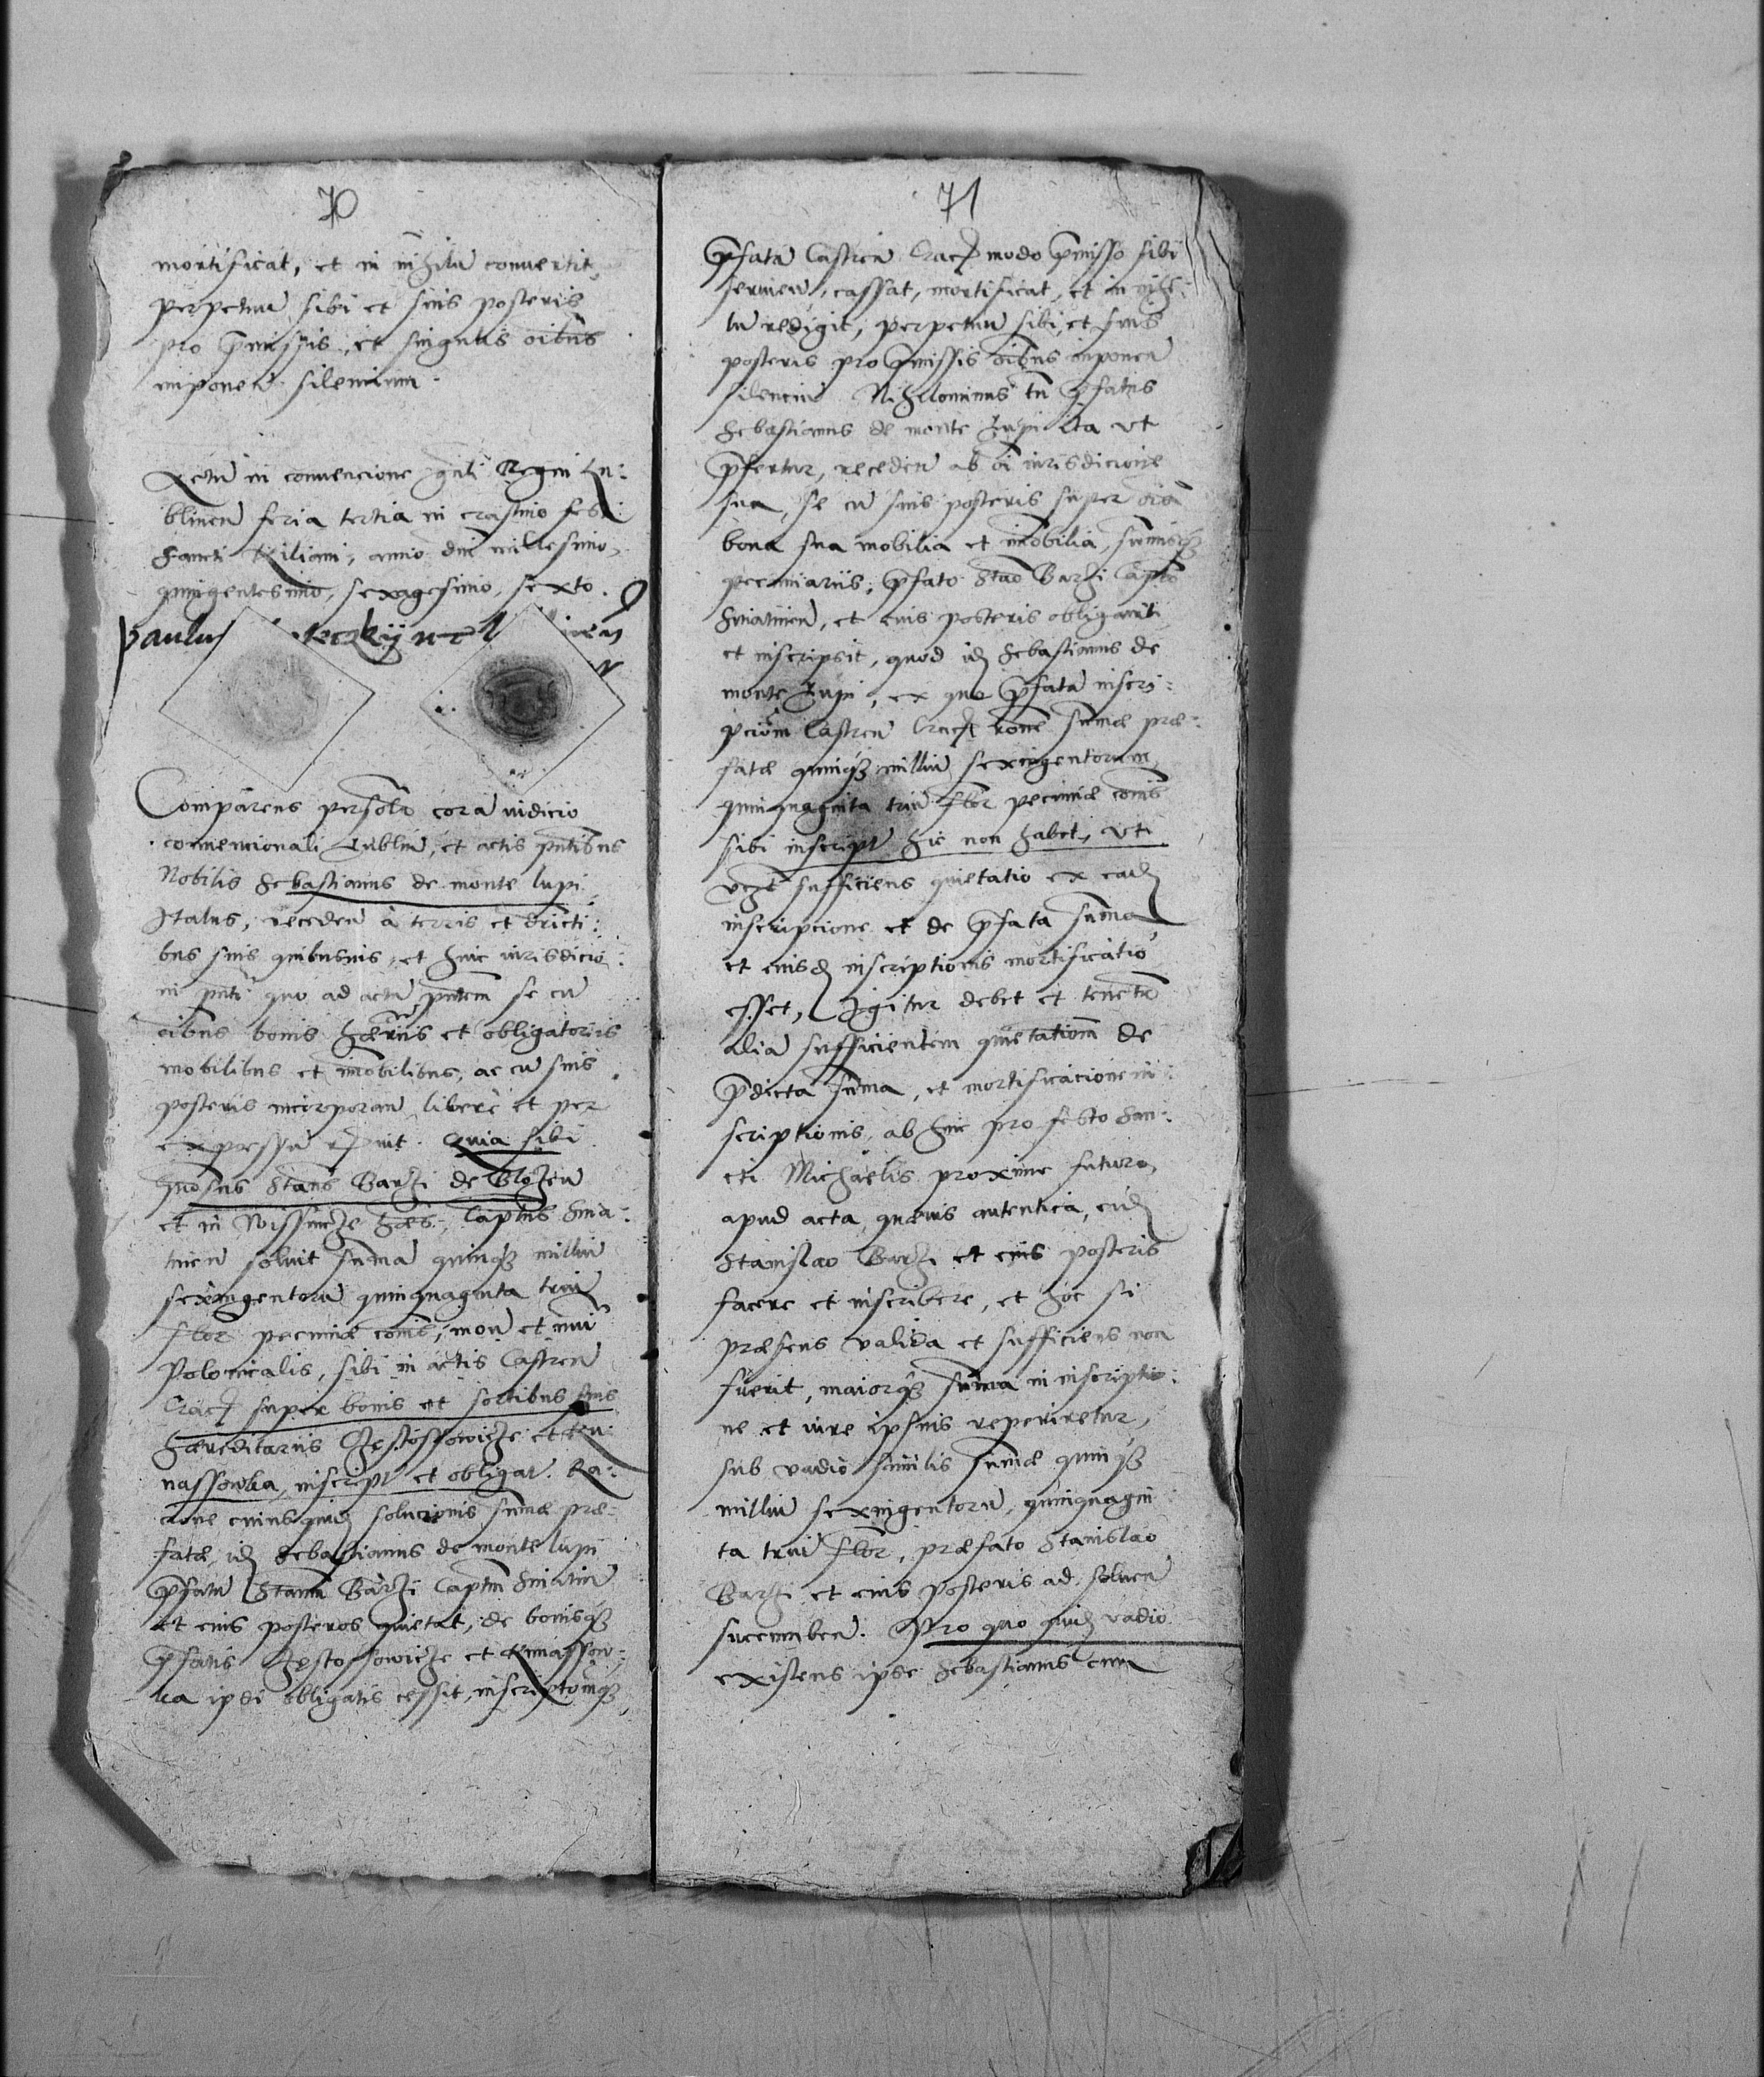 70
mortificat, et in nihilu convertit
perpetuu sibi et suis posteris
pro pmissis, et singulis oibus
imponen silencium.
Actu in convencione gnli Regni Lu:
blinen feria tertia in crastino festi
Sancti Kiliani, anno dni millesimo
quingentesimo, sexagesimo, sexto.
paulus
Comparens personlr cora iudicio
convencionali Lublin, et actis pntibus
Nobilis Sebastianus de monte lupi
Italus, receden à terris et dricti:
bus suis quibusvis, et huic iurisdicio:
ni pnti quo ad actu pntem se cu
oibus bonis haeriis et obligatoriis
mobilibus et imobilibus, ac cu suis
posteris incorporan, liberè et per
expressu rznit. Quia sibi
gnosus Stans Barzi de Blozen
et in Wissnicze haes:, Captus Snia:
tinen solvit suma quinqz milliu
sexingentoru quinquaginta triu
flor pecuniae cois, mon et nui
Polonicalis, sibi in actis Castren
Crac super bonis et sortibus suis
haereditariis Gestossowicze et
nassowka, inscript et obligat. Ra:
cone cuiusquid solucionis sumae prae-
fatae, id Sebastianus de monte lupi
pfatu Stanu Barzi Captm Sniatin
et eius posteros quietat, de bonisqz
pfatis Gestossowicze et Krnassow:
ka ipsi obligatis cessit, inscriptomqz
71
pfata Castren Crac modo pmisso sibi
servien, cassat, mortificat, et in nihi:
lu redigit, perpetuu sibi, et suis
posteris pro pmissis oibus imponen
silenciu. Nihilominus tn pfatus
Sebastianus de monte Lupi ita ut
pfertur, receden ab oi iurisdicione
sua, se cu suis posteris super oia
bona sua mobilia et imobilia, sumisqz
pecuniariis, pfato Stao Barzi Capto
Sniatinen, et eius posteris obligavit
et inscripsit, quod id Sebastianus de
monte Lupi, ex quo pfata inscri:
pciom Castren Crac rone sumae prae:
fatae quinqz milliu sexingentorum
quinquaginta triu flor pecuniae cois
sibi inscript hic non habet, uti
sufficiens quietatio ex ead
inscripcione et de pfata suma
et eiusd inscriptionis mortificatio
esset, Igitur debet et tenetur
alia sufficientem quietationem de
pdicta suma, et mortificacione in:
scriptionis, ab hinc pro festo San:
cti Michaelis proxime futuro,
apud acta, quaevis autentica, eid
Stanislao Barzi et eius posteris
facere et inscribere, et hoc si
praesens valida et sufficiens non
fuerit, maiorqz suma in inscriptio:
ne et iure ipsius reperiretur,
sub vadio similis sumae quinqz
milliu sexingentoru, quinquagin
ta triu flor, praefato Stanislao
Barzi et eius posteris ad solven
succumben. Pro quo quid vadio
existens ipse Sebastianus cum